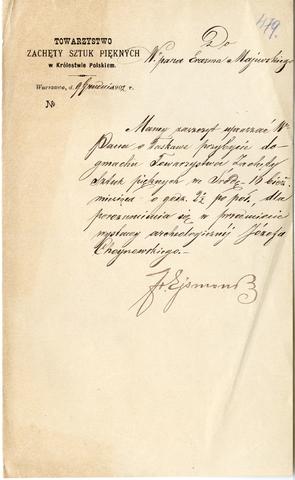 479.
TOWARZYSTWO
ZACHĘTY SZTUK PIĘKNYCH
w Królestwie Polskiem.
Do
W. pana Erazma Majewskiego
Warszawa, d. Grudnia r.
№
Mamy zaszczyt upraszać W.
Pana o łaskawe przybycie do
gmachu Towarzystwa Zachęty
Sztuk pięknych w Środę 16 bież.
miesiąca o godz. po poł., dla
porozumienia się w przedmiocie
wystawy archeologicznej Józefa
Choynowskiego.
Fr. Ejsmond